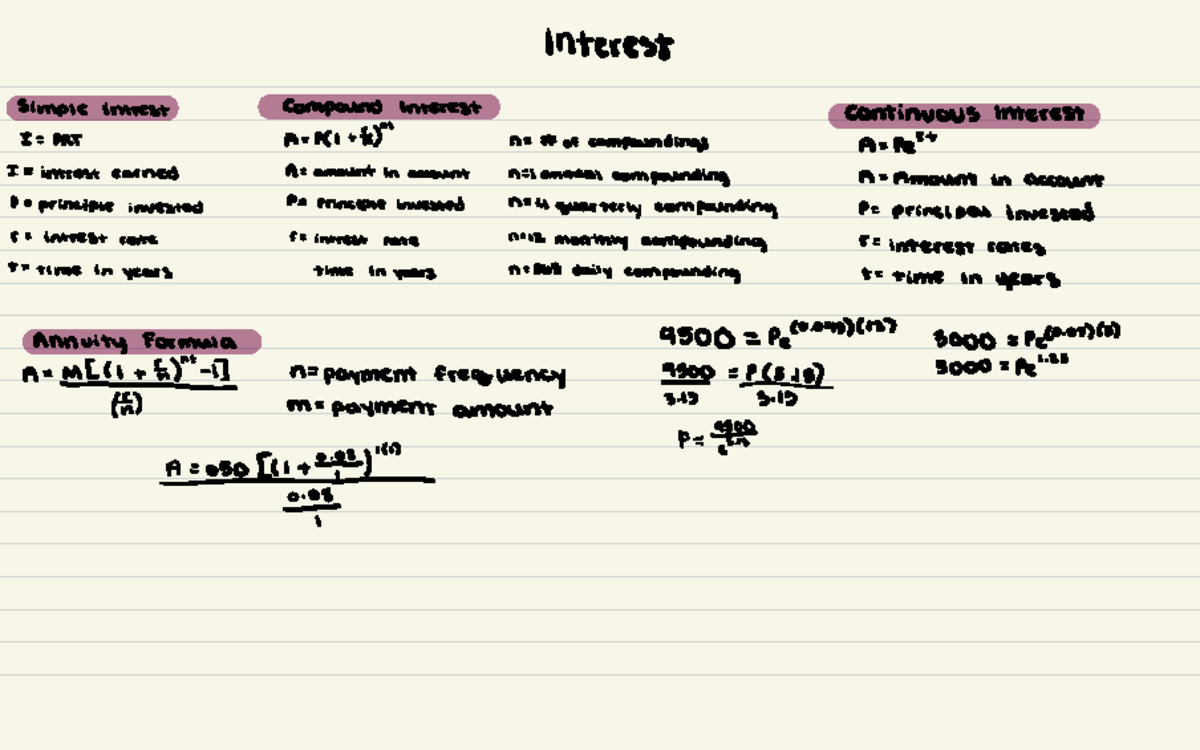 Interest
Simple intrest
I = PRT
I = intrest earned
P = principle invested
r = intrest rate
t = time in years
Compound Interest
A = P(1 + r/n)^nt
A = amount in account
P = Principle Invested
r = intrest rate
time in years
n = # of compoundings
n=1 annual compounding
n=4 quarterly compounding
n=12 monthly compounding
n=365 daily compounding
Continuous Interest
A = Pe^rt
A = Amount in account
P = principal invested
r = interest rates
t = time in years
Annuity Formula
A = M[(1 + r/n)^nt -1]
(r/n)
n = payment frequency
m = payment amount
A = 650 [(1 + 0.08/1)^1(1)
0.08
1
9500 = Pe
9500 = P(3.13)
3.13 3.13
P = 9500
3000 = Pe
3000 = Pe